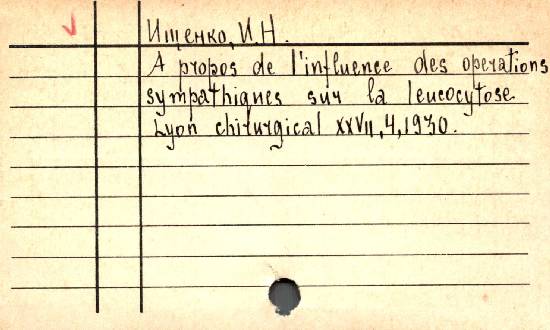 Ищенко, И.Н.
A propos de l'influence des operations
sympathiques sur la leucocytose.
Lyon chirurgical XXVII, 4, 1930.